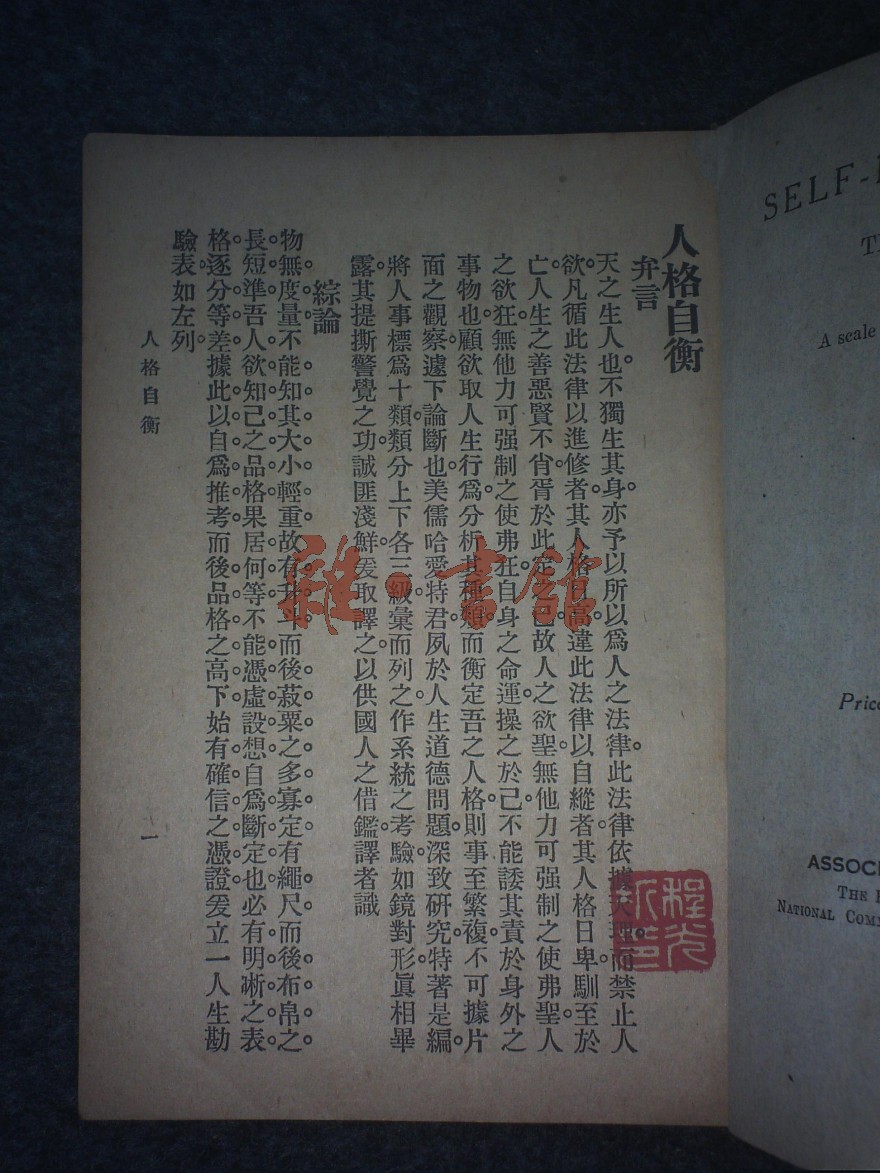 人格自衡
弁言
天之生人也。不獨生其身。亦予以所以爲人之法律。此法律依據天理。而禁止人
欲。凡循此法律以進修者。其人格日高。違此法律以自縱者。其人格日卑。馴至於
亡。人生之善惡賢不肖。胥於此定之也。故人之欲聖。無他力可强制之使弗聖。人
之欲狂。無他力可强制之使弗狂。自身之命運。操之於己。不能諉其責於身外之
事物也。顧欲取人生行爲。分析其種類。而衡定吾之人格。則事至繁複。不可據片
面之觀察。遽下論斷也。美儒哈愛特君。夙於人生道德問題。深致研究。特著是編。
將人事標爲十類。類分上下各三級。彙而列之。作系統之考驗。如鏡對形。眞相畢
露。其提撕警覺之功。誠匪淺鮮。爰取譯之。以供國人之借鑑。譯者識
綜論
物無度量。不能知其大小輕重。故有升斗。而後菽粟之多寡定。有繩尺。而後布帛之
長短準。吾人欲知己之品格。果居何等。不能憑虛設想。自爲斷定也。必有明晰之表
格。逐分等差。據此以自爲推考。而後品格之高下。始有確信之憑證。爰立一人生勘
驗表如左列。
人格自衡
一
雜·書館
SELF-
A scale
Price
ASSOC
NATIONAL COM